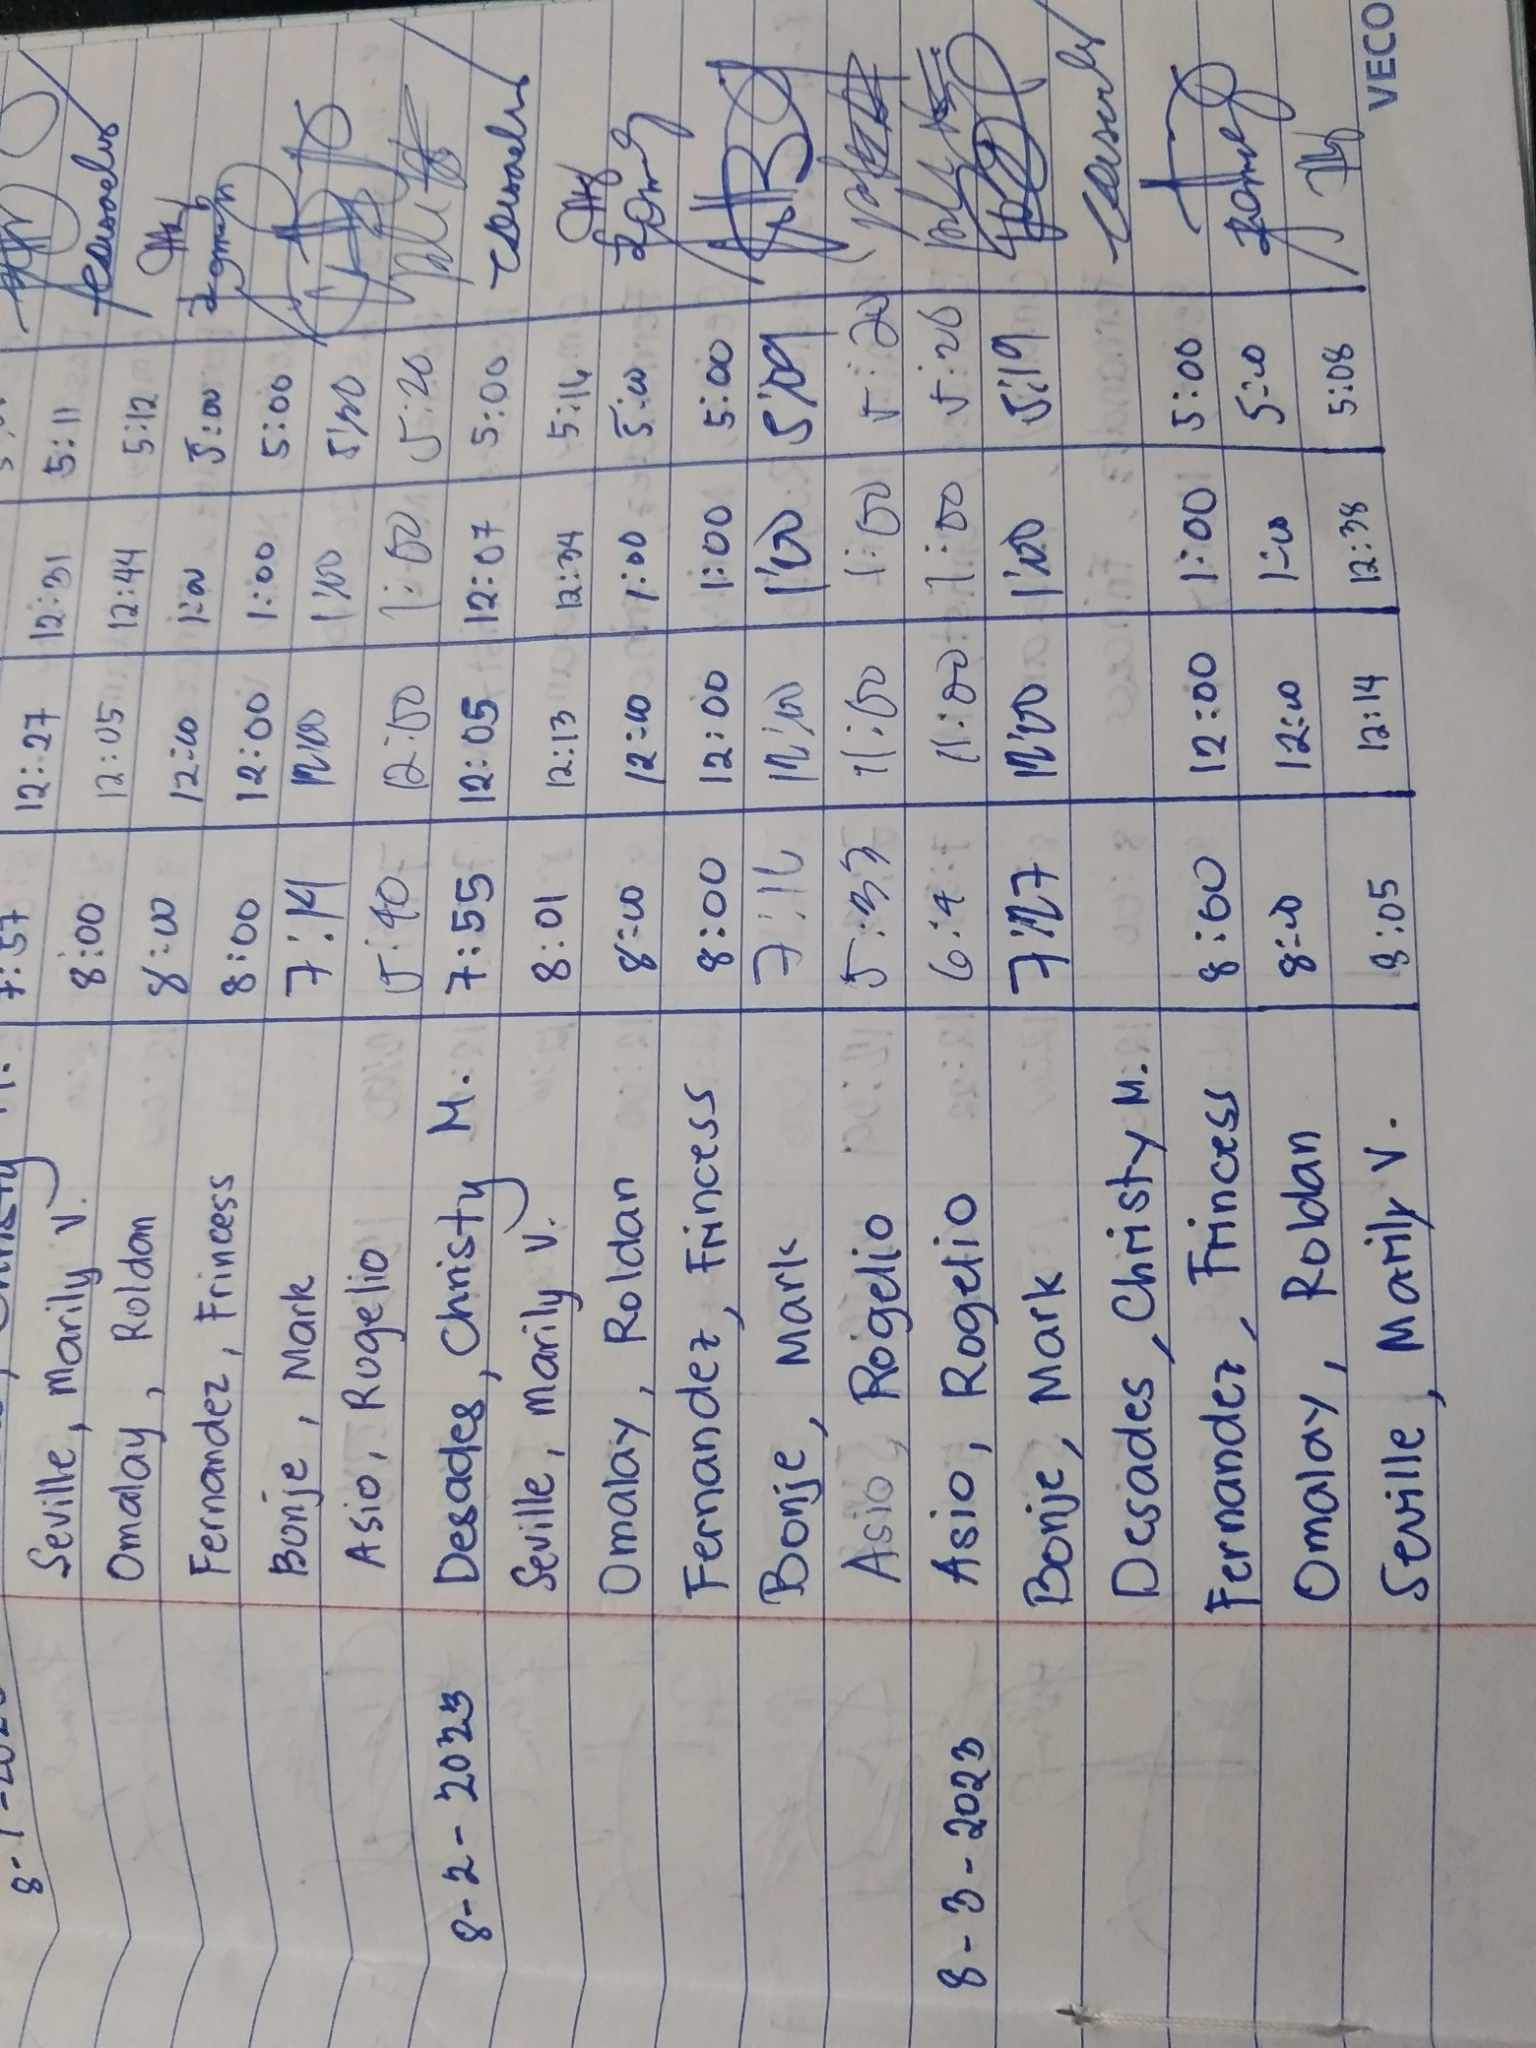 Seville, Marily V. 8:00 12:27 12:31 5:11
Omalay, Roldan 8:00 12:05 12:44 5:12
Fernandez, Frincess 8:00 12:00 1:00 5:00
Bonje, Mark 7:14 12:00 1:00 5:00
Asio, Rogelio 5:40 12:00 1:00 5:20
8-2-2023 Desades, Christy M. 7:55 12:05 12:07 5:00
Seville, Marily V. 8:01 12:13 12:34 5:16
Omalay, Roldan 8:00 12:00 1:00 5:00
Fernandez, Frincess 8:00 12:00 1:00 5:00
Bonje, Mark 7:16 12:00 1:00 5:09
Asio, Rogelio 5:33 11:00 1:00 5:20
8-3-2023 Asio, Rogelio 6:4 11:00 1:00 5:20
Bonje, Mark 7:27 12:00 1:00 5:19
Desades, Christy M.
Fernandez, Frincess 8:00 12:00 1:00 5:00
Omalay, Roldan 8:00 12:00 1:00 5:00
Seville, Marily V. 8:05 12:14 12:38 5:08
VECO